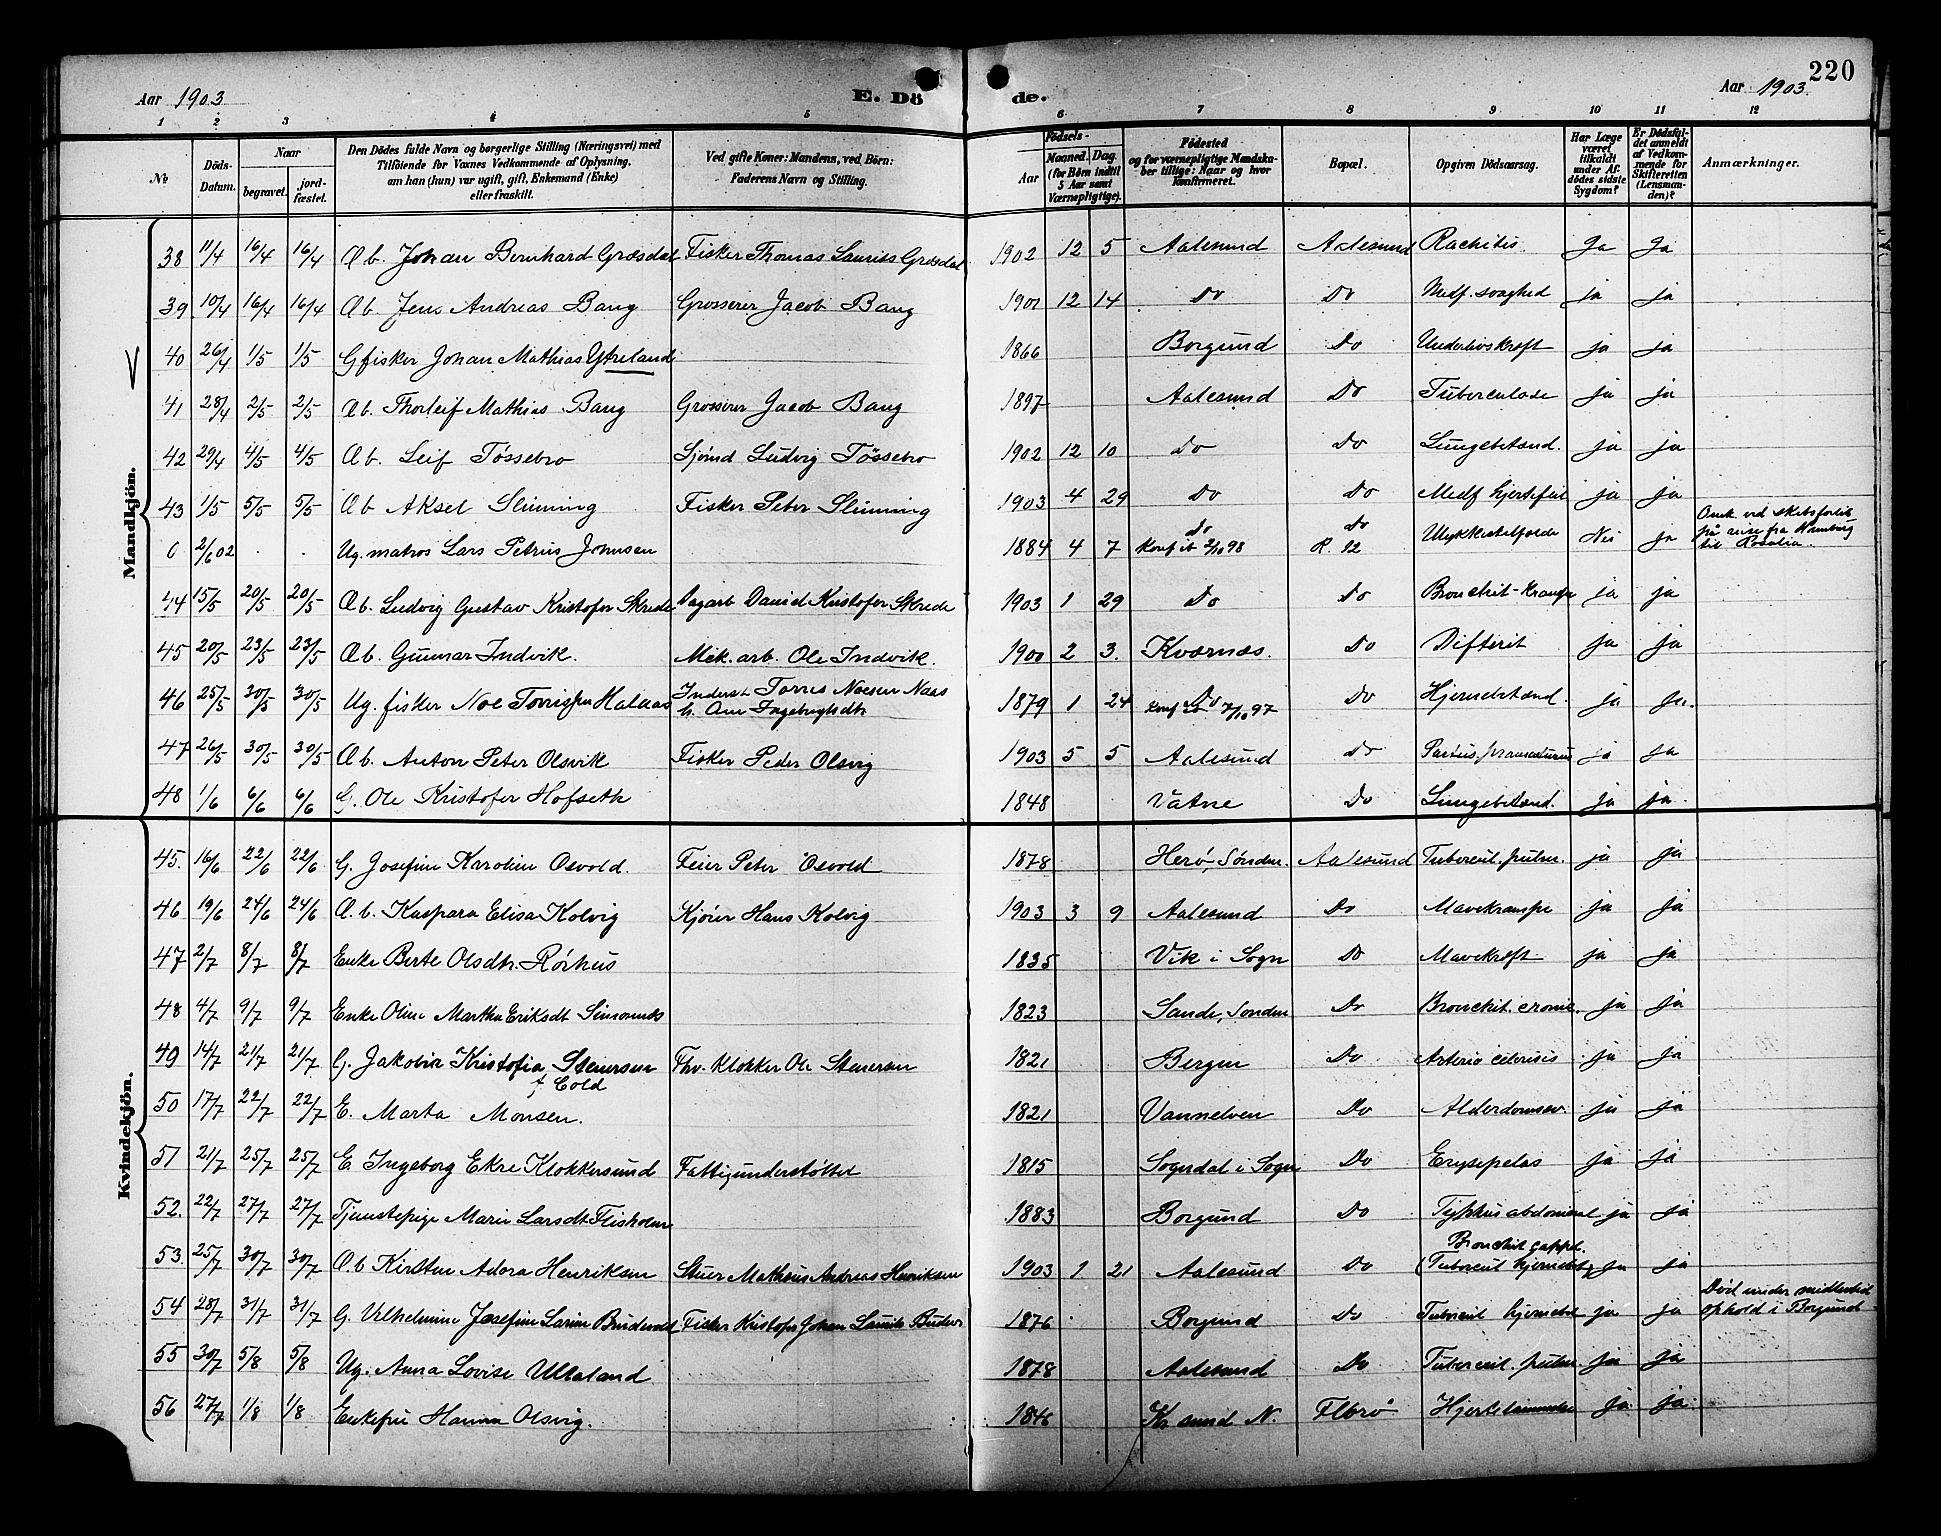 220
Aar 1903
E. Dö
de.
Aar 1903.
1 2 3 4 5 6 7 8 9 10 11 12
№
Döds-Datum.
Naar
begravet.
jord-fæstet.
Den Dödes fulde Navn og borgerlige Stilling (Næringsvei) med
Tilföiende for Voxnes Vedkommende af Oplysning,
om han (hun) var ugift, gift, Enkemand (Enke)
eller fraskilt.
Ved gifte Koner: Mandens, ved Börn:
Faderens Navn og Stilling.
Födsels-
Aar
Maaned. Dag.
(for Börn indtil
5 Aar samt
Værnepligtige).
Födested
og for værnepligtige Mandska-
ber tillige: Naar og hvor
Konfirmeret.
Bopæl.
Opgiven Dödsaarsag.
Har Læge
været
tilkaldt
under Af-
dödes sidste
Sygdom?
Er Dödsfal-
det anmeldt
af Vedkom-
mende for
Skifteretten
(Lensman-
den)?
Anmærkninger.
Mandkjön.
38 11/4 16/4 16/4 Æb. Johan Bernhard Græsdal Fisker Thomas Laurits Græsdal 1902 12 5 Aalesund Aalesund Rachitis. Ja Ja
39 10/4 16/4 16/4 Æb. Jens Andreas Bang Grosserer Jacob Bang 1901 12 14 Do Do Medf. svaghed ja ja
40 26/4 1/5 1/5 G fisker Johan Mathias Ytreland 1866 Borgund Do Underlivskræft ja ja
41 28/4 2/5 2/5 Æb. Thorleif Mathias Bang Grosserer Jacob Bang 1897 Aalesund Do Tuberculose ja ja
42 29/4 4/5 4/5 Æb. Leif Tössebro Sjömd Ludvig Tössebro 1902 12 10 Do Do Lungebetænd. ja ja
43 1/5 5/5 5/5 Æb Aksel Slinning Fisker Peter Slinning 1903 4 29 Do Do Medf hjertefeil ja ja
0 2/6 02 . . Ug. matros Lars Petrus Johnsen 1884 4 7 Do Konf it 2/10 98 Do R. 12 Ulykkestilfælde Nei ja Omk. ved skibsforlis
på reise fra Hamburg
til Rosalia.
44 15/5 20/5 20/5 Æb. Ludvig Gustav Kristofer Skrede Dagarb David Kristofer Skrede 1903 1 29 Do Do Bronchit-Krampe ja ja
45 20/5 23/5 23/5 Æb. Gunnar Indvik. Mek. arb. Ole Indvik. 1900 2 3. Kværnæs. Do Difterit ja ja
46 25/5 30/5 30/5 Ug. fisker Noe Halaas Inderst Torres Noesen Naas
1879 1 24 Do 7/10 97 Do Hjernebetænd ja ja.
47 26/5 30/5 30/5 Æb. Anton Peter Olsvik Fisker Peder Olsvig 1903 5 5 Aalesund Do Partus præmaturus ja ja
48 1/6 6/6 6/6 G. Ole Kristofer Hofseth 1848 Vatne Do Lungebetænd. ja ja.
Kvindekjön.
45. 16/6 22/6 22/6 G. Josefine Karoline Osvold. Feier Peter Osvold 1878 Herö, Söndm. Aalesund Tubercul. pulm. ja ja
46 19/6 24/6 24/6 Æ. b. Kaspara Elisa Kolvig Kjörer Hans Kolvig 1903 3 9 Aalesund Do Mavekrampe ja ja
47 2/7 8/7 8/7 Enke Berte Olsdtr. Rörhus 1835 Vik i Sogn Do Mavekræft ja ja
48 4/7 9/7 9/7 Enke Oline Martha Eriksdt Simonnes 1823 Sande, Söndm Do Bronchit. cronic. ja ja
49 14/7 21/7 21/7 G. Jakobine Kristofia Stenersen
f Cold Fhv. Klokker Ole Stenersen 1821 Bergen Do Arterio sclerosis ja ja
50 17/7 22/7 22/7 E. Marta Monsen. 1821 Vannelven Do Alderdomssv. ja ja
51 21/7 25/7 25/7 E Ingeborg Ekre Klokkersund Fattigunderstöttet 1815 Sogndal i Sogn Do Erysipelas ja ja
52. 22/7 27/7 27/7 Tjenestepige Marie Larsdt Flisholm 1883 Borgund Do Typhus abdominal ja ja
53. 25/7 30/7 30/7 Æ.b Kirsten Adora Henriksen Stuer Mathæus Andreas Henriksen 1903 1 21 Aalesund Do Bronchit cappel.
(Tubercul hjernebet. ja ja
54 28/7 31/7 31/7 G. Vilhelmine Josefine Larine Brudevold Fisker Kristofer Johan Brudev. 1876 . Borgund Do Tubercul hjernebet ja ja Död under midlertid
ophold i Borgund
55 30/7 5/8 5/8 Ug. Anna Lovise Ullaland 1878 Aalesund Do Tubercul. pulm ja ja
56 27/7 1/8 1/8 Enkefru Hanna Olsvig. 1846 Kr. sund N. Florö Hjertelammelse ja ja.